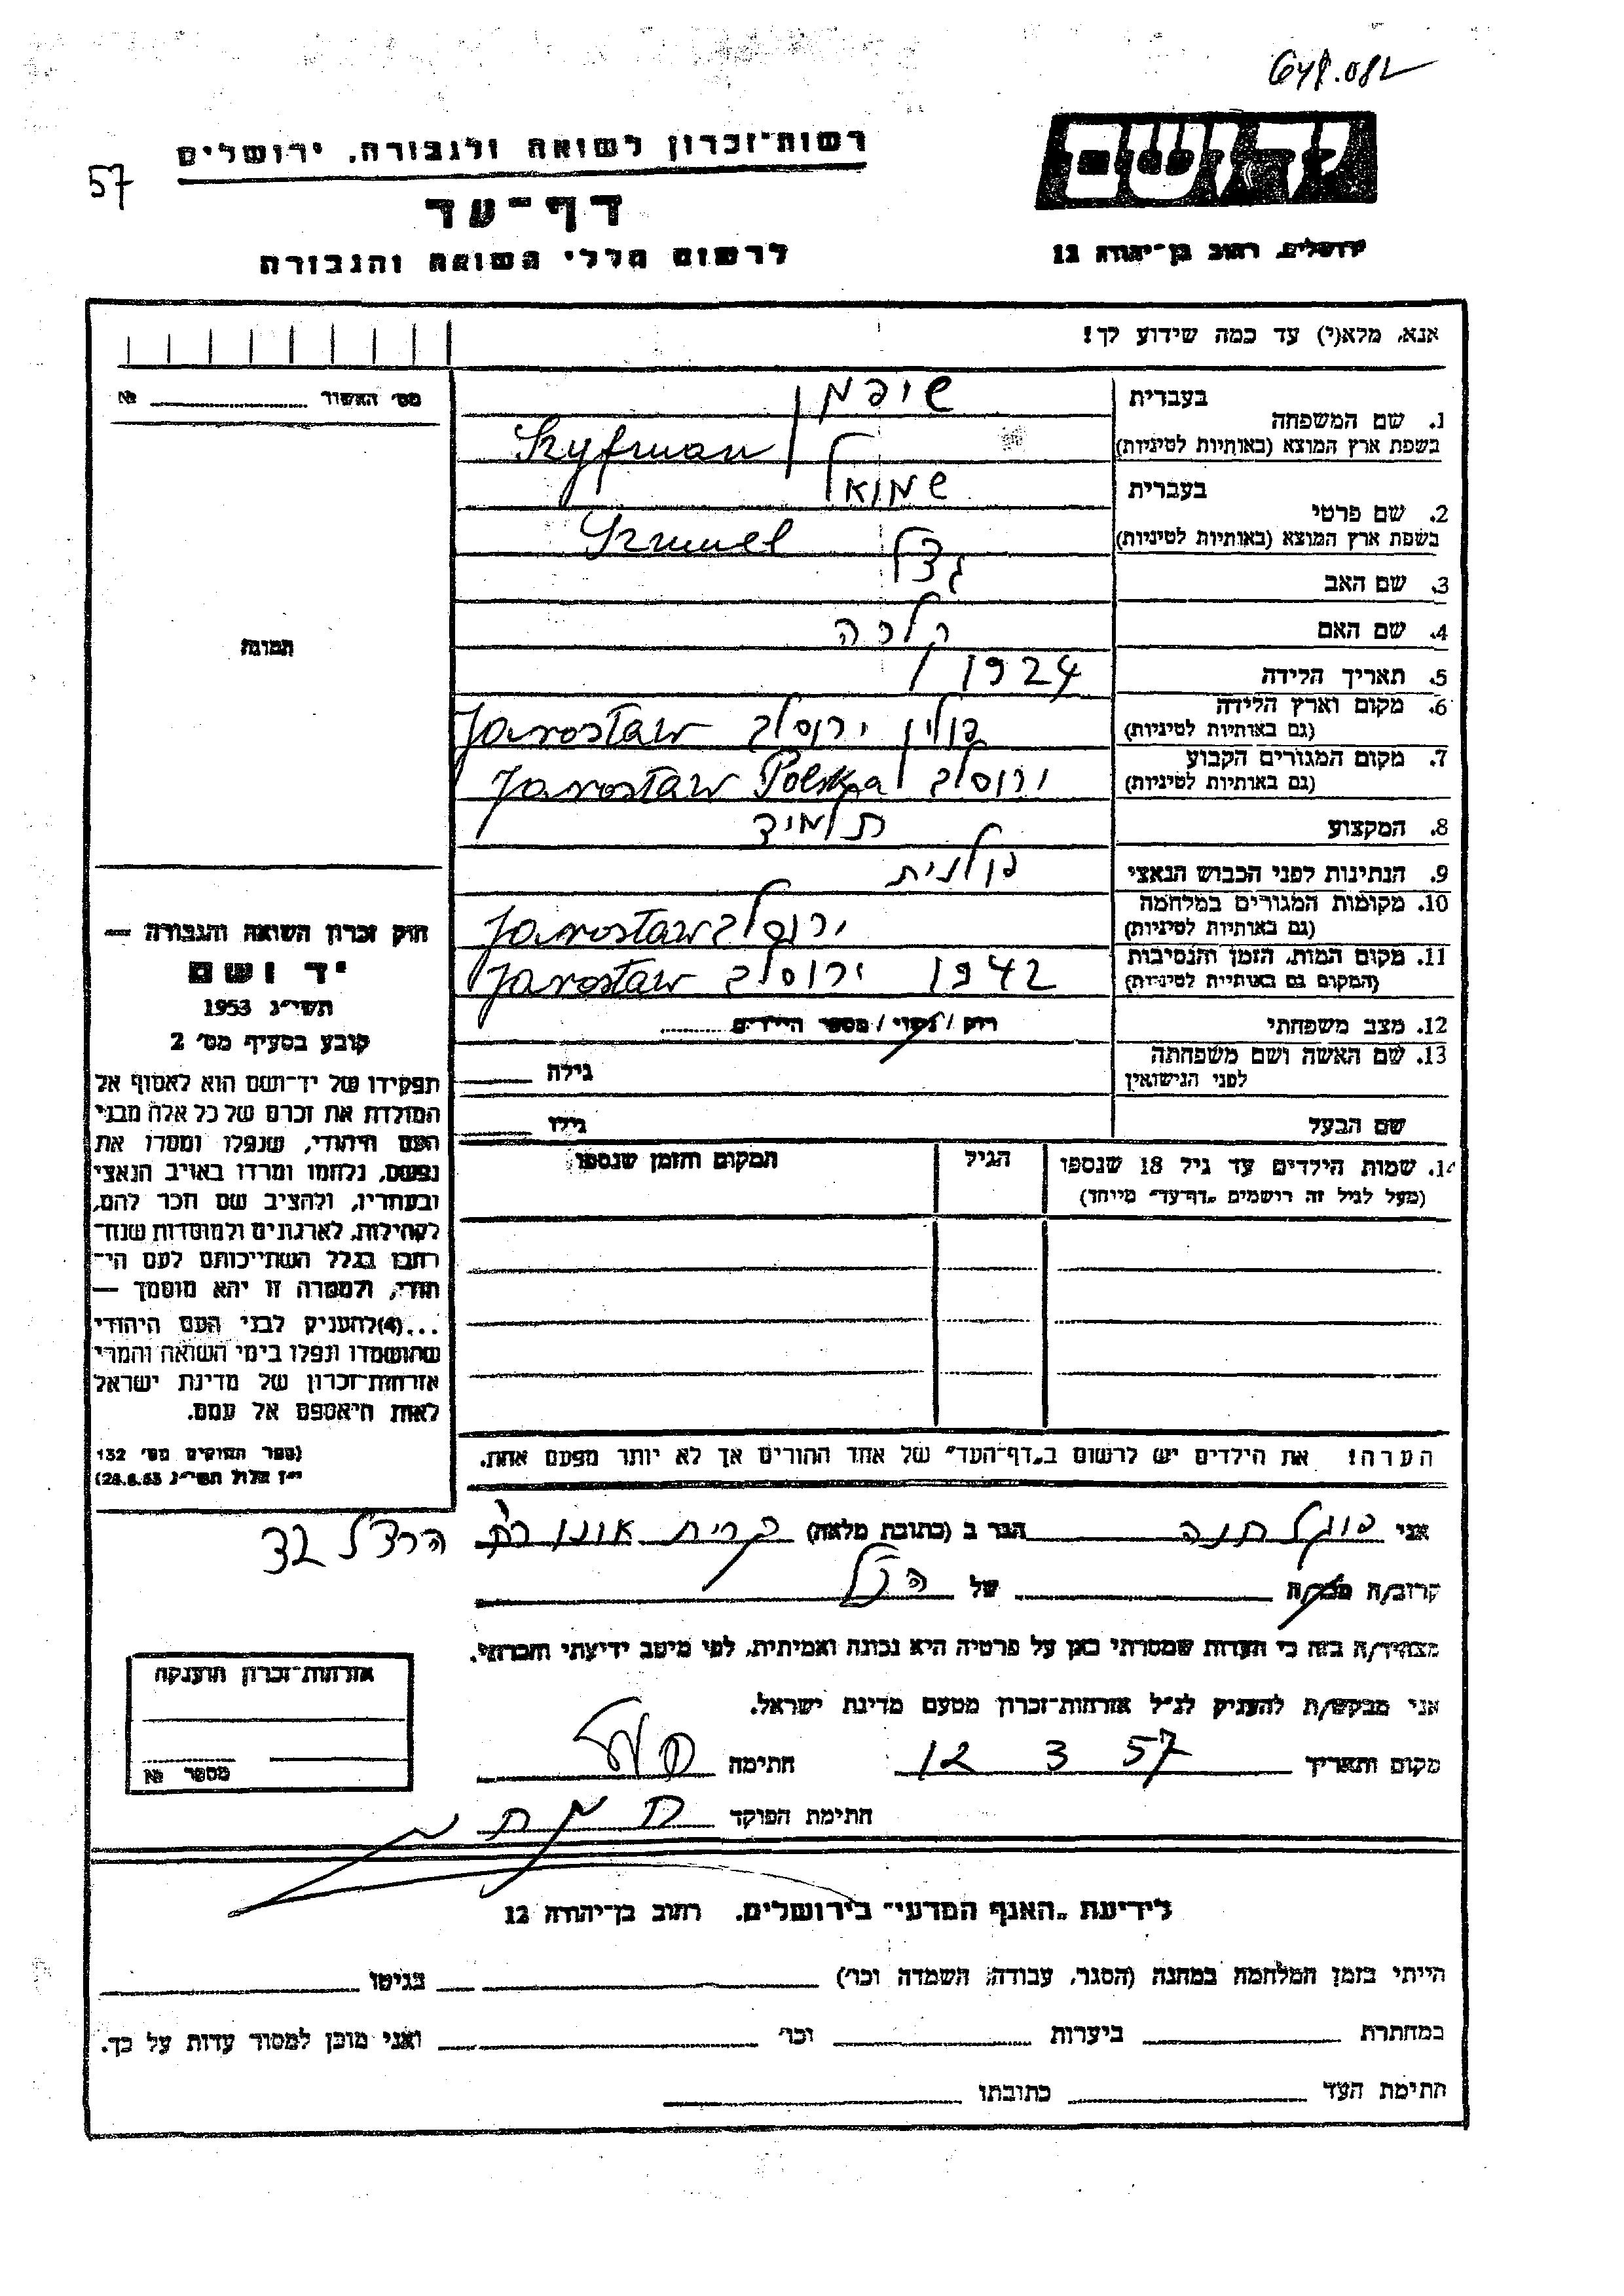 57
רשות־זכרון לשואה ולגבורה, ירושלים
דף־עד
לרשום חללי השואה והגבורה
יד ושם
ירושלים, רחוב בן־יהודה 12
אנא, מלא(י) עד כמה שידוע לך!
מס' האשור № 
1. שם המשפחה
בעברית שיפמן
בשפת ארץ המוצא (באותיות לטיניות) Szyfman
2. שם פרטי
בעברית שמואל
בשפת ארץ המוצא (באותיות לטיניות) Szmuel
3. שם האב גצל
4. שם האם
5. תאריך הלידה 1924
6. מקום וארץ הלידה פולין ירוסלב Jarosław
(גם באותיות לטיניות)
7. מקום המגורים הקבוע ירוסלב Jarosław Polska
(גם באותיות לטיניות)
8. המקצוע תלמיד
9. הנתינות לפני הכבוש הנאצי פולנית
10. מקומות המגורים במלחמה ירוסלב Jarosław
(גם באותיות לטיניות)
11. מקום המות, הזמן והנסיבות 1942 ירוסלב Jarosław
(המקום גם באותיות לטיניות)
12. מצב משפחתי רווק / נשוי / מספר הילדים
13. שם האשה ושם משפחתה גילה
לפני הנישואין
שם הבעל גילו
14. שמות הילדים עד גיל 18 שנספו הגיל המקום והזמן שנספו
(מעל לגיל זה רושמים "דף־עד" מיוחד)
הערה! את הילדים יש לרשום ב"דף־העד" של אחד ההורים אך לא יותר מפעם אחת.
תמונה
חוק זכרון השואה והגבורה —
יד ושם
תשי"ג 1953
קובע בסעיף מס' 2
תפקידו של יד־ושם הוא לאסוף אל
המולדת את זכרם של כל אלה מבני
העם היהודי, שנפלו ומסרו את
נפשם, נלחמו ומרדו באויב הנאצי
ובעוזריו, ולהציב שם וזכר להם,
לקהילות, לארגונים ולמוסדות שנח־
רבו בגלל השתייכותם לעם הי־
הודי, ולמטרה זו יהא מוסמך —
...(4)להעניק לבני העם היהודי
שהושמדו ונפלו בימי השואה והמרי
אזרחות־זכרון של מדינת ישראל
לאות היאספם אל עמם.
(ספר החוקים מס' 132
י"ז אלול תשי"ג 28.8.53)
אני פוגל חנה הגר ב (כתובת מלאה) קרית אונו רח' הרצל 32
קרוב/ה מכר/ה של הנ"ל
מצהיר/ה בזה כי העדות שמסרתי כאן על פרטיה היא נכונה ואמיתית, לפי מיטב ידיעתי והכרתי.
אני מבקש/ת להעניק לנ"ל אזרחות־זכרון מטעם מדינת ישראל.
מקום ותאריך 12 3 57 חתימה
חתימת הפוקד
אזרחות־זכרון הוענקה
מספר №
לידיעת "האגף המדעי" בירושלים, רחוב בן־יהודה 12
הייתי בזמן המלחמה במחנה (הסגר, עבודה, השמדה וכו') בגיטו
במחתרת ביערות וכו' ואני מוכן למסור עדות על כך.
חתימת העד כתובתו